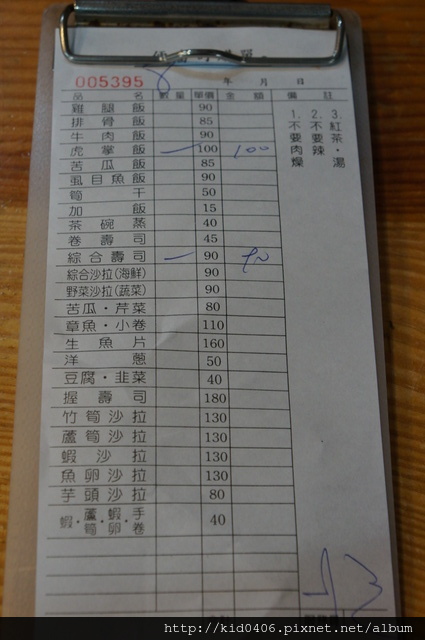 005395 年 月 日
品 名 數 量 單價 金 額 備 註
雞腿飯 90
排骨飯 85
牛肉飯 90
虎掌飯 一 100 100
苦瓜飯 85
虱目魚飯 90
筍干 50
加飯 15
茶碗蒸 40
卷壽司 45
綜合壽司 一 90 90
綜合沙拉(海鮮) 90
野菜沙拉(蔬菜) 90
苦瓜・芹菜 80
章魚・小卷 110
生魚片 160
洋蔥 50
豆腐・韭菜 40
握壽司 180
竹筍沙拉 130
蘆筍沙拉 130
蝦沙拉 130
魚卵沙拉 130
芋頭沙拉 80
蝦・蘆筍・蝦卵・手卷 40
1.不要肉燥
2.不要辣
3.紅茶・湯
http://kid0406.pixnet.net/album